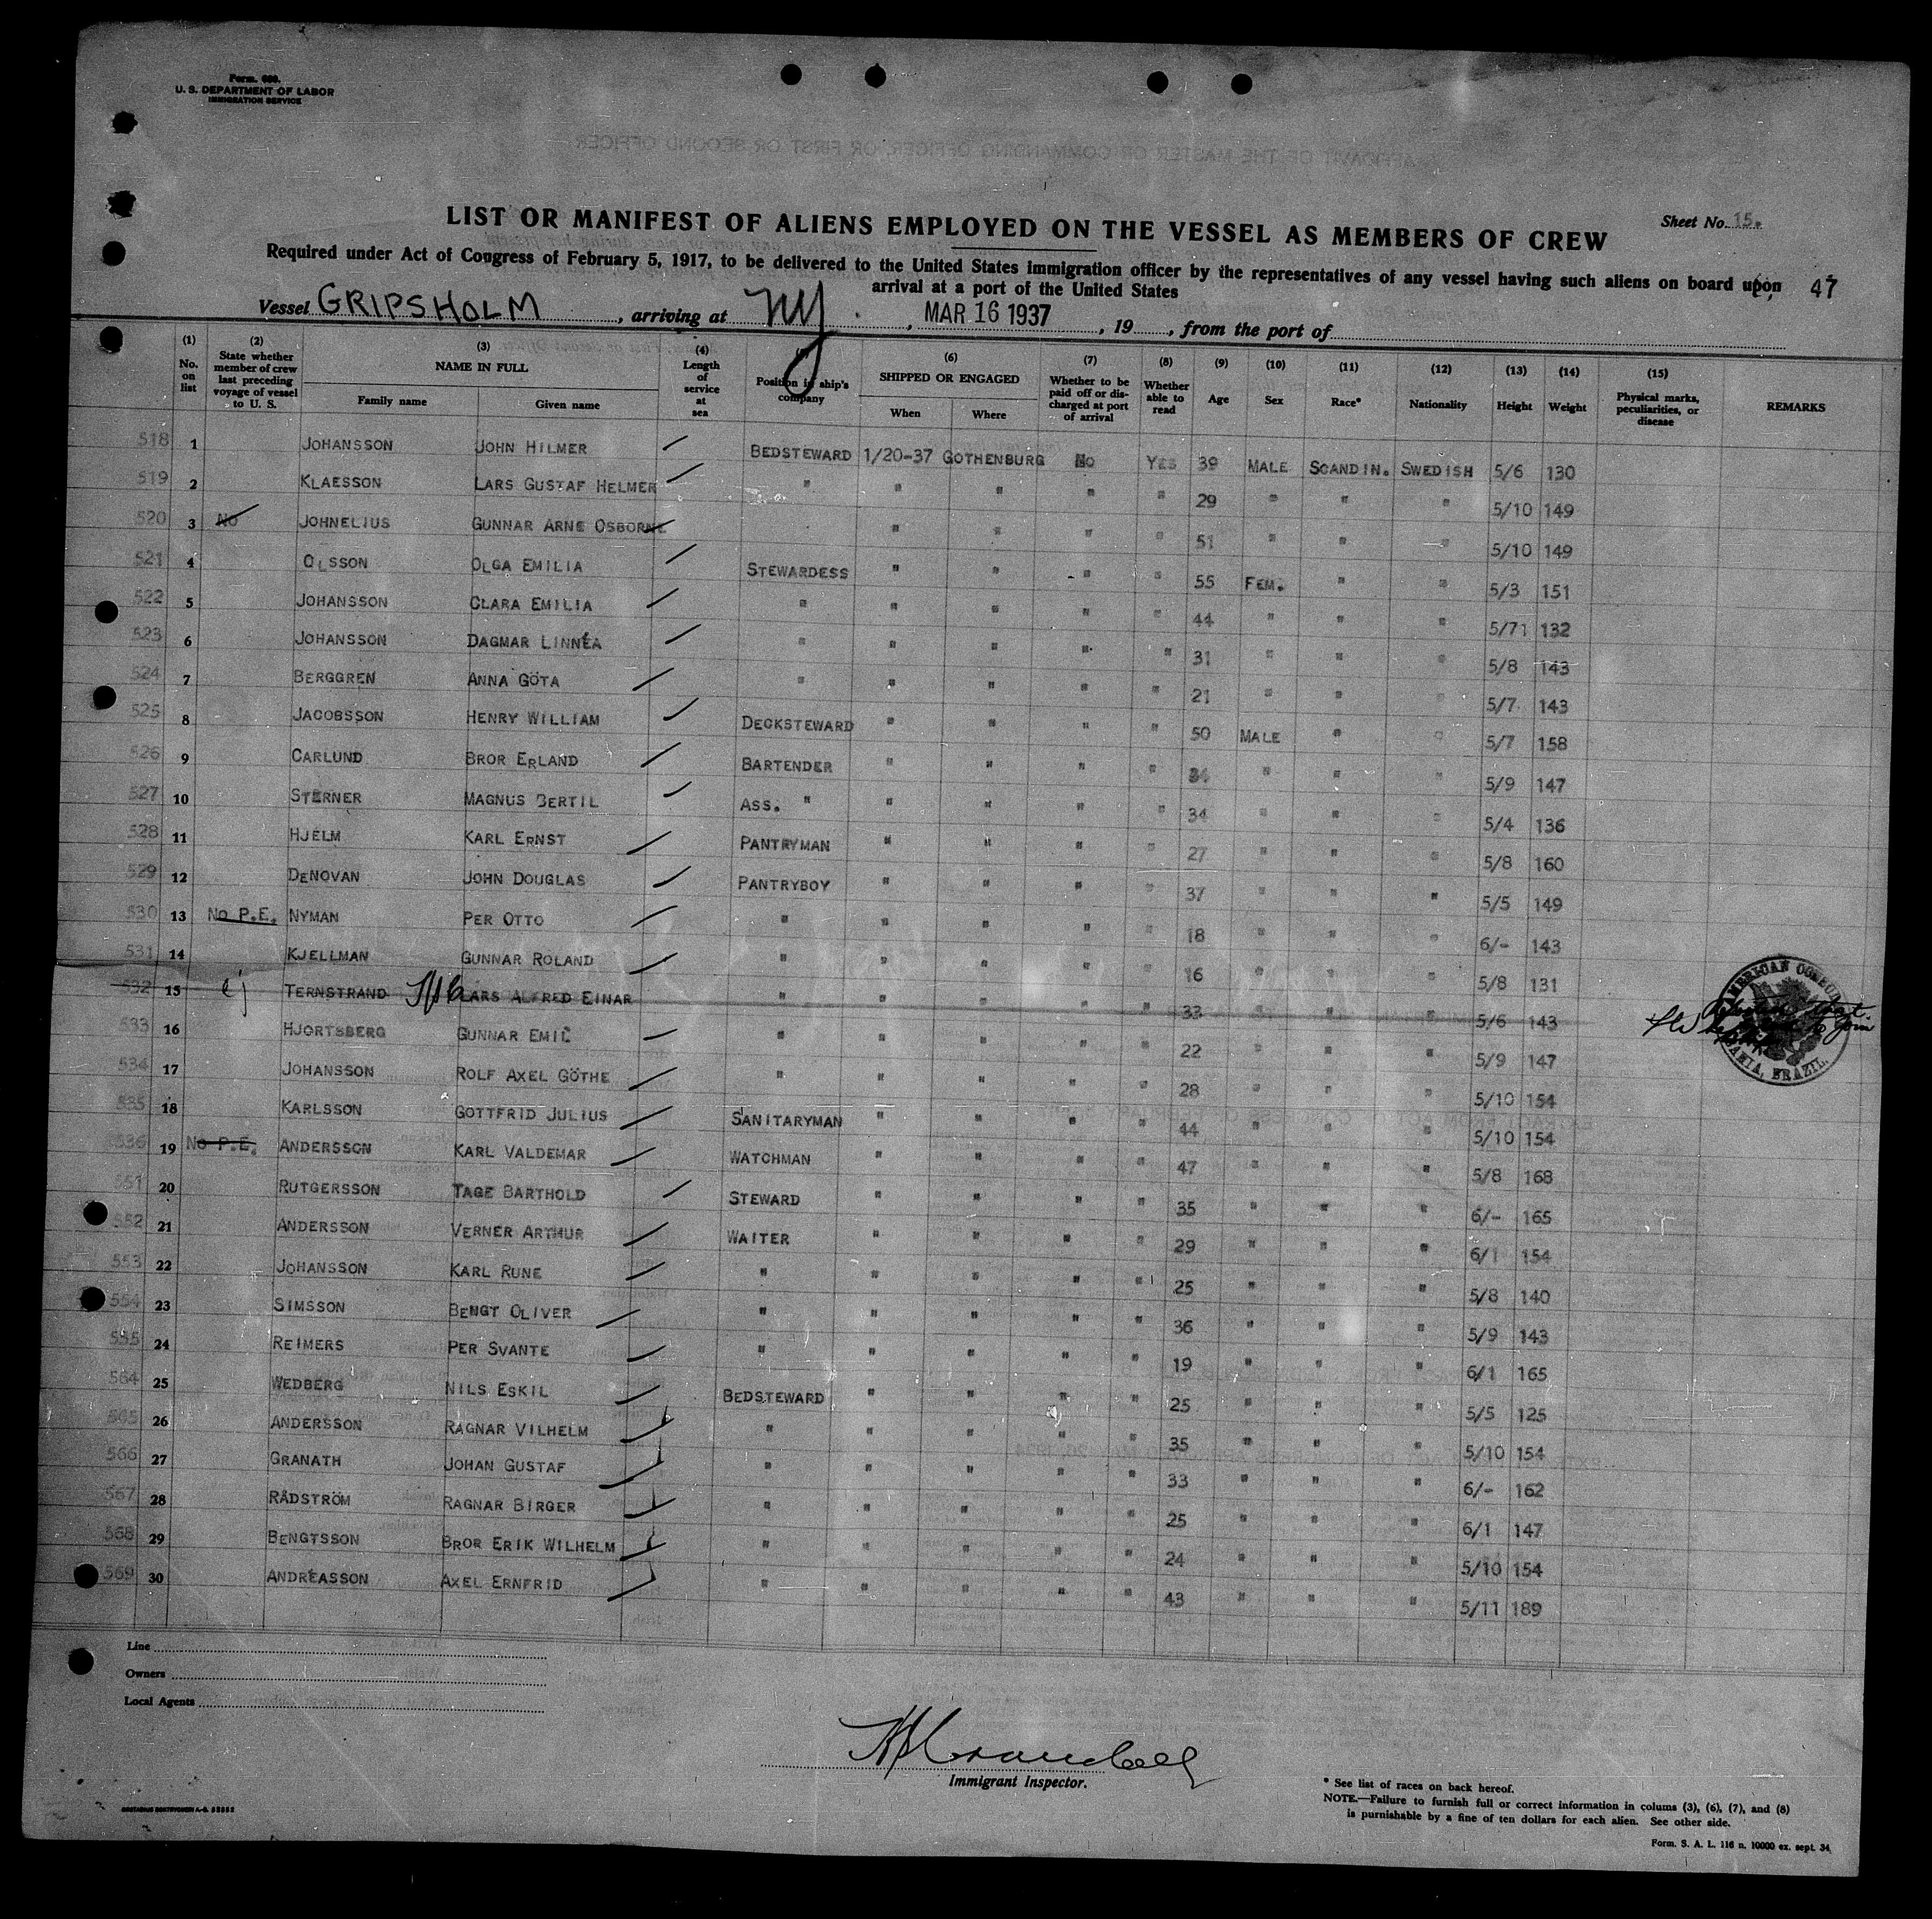 Form. 680.
U. S. DEPARTMENT OF LABOR
IMMIGRATION SERVICE
LIST OR MANIFEST OF ALIENS EMPLOYED ON THE VESSEL AS MEMBERS OF CREW
Sheet No. 15.
Required under Act of Congress of February 5, 1917, to be delivered to the United States immigration officer by the representatives of any vessel having such aliens on board upon
arrival at a port of the United States
47
Vessel GRIPSHOLM, arriving at NY, MAR 16 1937, 19, from the port of
(1) No. on list (2) State whether member of crew last preceding voyage of vessel to U. S. (3) NAME IN FULL Family name Given name (4) Length of service at sea Position in ship's company (6) SHIPPED OR ENGAGED When Where (7) Whether to be paid off or discharged at port of arrival (8) Whether able to read (9) Age (10) Sex (11) Race* (12) Nationality (13) Height (14) Weight (15) Physical marks, peculiarities, or disease REMARKS
518 1 JOHANSSON JOHN HILMER BEDSTEWARD 1/20-37 GOTHENBURG NO YES 39 MALE SCANDIN. SWEDISH 5/6 130
519 2 KLAESSON LARS GUSTAF HELMER " " " " " 29 " " " 5/10 149
520 3 No JOHNELIUS GUNNAR ARNE OSBORNE " " " " 51 " " " 5/10 149
521 4 OLSSON OLGA EMILIA STEWARDESS " " " " 55 FEM. " " 5/3 151
522 5 JOHANSSON CLARA EMILIA " " " " " 44 " " " 5/71 132
523 6 JOHANSSON DAGMAR LINNÉA " " " " " 31 " " " 5/8 143
524 7 BERGGREN ANNA GÖTA " " " " " 21 " " " 5/7 143
525 8 JACOBSSON HENRY WILLIAM DECKSTEWARD " " " " 50 MALE " " 5/7 158
526 9 CARLUND BROR ERLAND BARTENDER " " " " 34 " " " 5/9 147
527 10 STERNER MAGNUS BERTIL ASS. " " " " " 34 " " " 5/4 136
528 11 HJELM KARL ERNST PANTRYMAN " " " " 27 " " " 5/8 160
529 12 DENOVAN JOHN DOUGLAS PANTRYBOY " " " " 37 " " " 5/5 149
530 13 No P.E. NYMAN PER OTTO " " " " " 18 " " " 6/- 143
531 14 KJELLMAN GUNNAR ROLAND " " " " " 16 " " " 5/8 131
532 15 ej TERNSTRAND LARS ALFRED EINAR " " " " " 33 " " " 5/6 143
533 16 HJORTSBERG GUNNAR EMIL " " " " " 22 " " " 5/9 147
534 17 JOHANSSON ROLF AXEL GÖTHE " " " " " 28 " " " 5/10 154
535 18 KARLSSON GOTTFRID JULIUS SANITARYMAN " " " " 44 " " " 5/10 154
536 19 No P.E. ANDERSSON KARL VALDEMAR WATCHMAN " " " " 47 " " " 5/8 168
551 20 RUTGERSSON TAGE BARTHOLD STEWARD " " " " 35 " " " 6/- 165
552 21 ANDERSSON VERNER ARTHUR WAITER " " " " 29 " " " 6/1 154
553 22 JOHANSSON KARL RUNE " " " " " 25 " " " 5/8 140
554 23 SIMSSON BENGT OLIVER " " " " " 36 " " " 5/9 143
555 24 REIMERS PER SVANTE " " " " " 19 " " " 6/1 165
564 25 WEDBERG NILS ESKIL BEDSTEWARD " " " " 25 " " " 5/5 125
565 26 ANDERSSON RAGNAR VILHELM " " " " " 35 " " " 5/10 154
566 27 GRANATH JOHAN GUSTAF " " " " " 33 " " " 6/- 162
567 28 RÅDSTRÖM RAGNAR BIRGER " " " " " 25 " " " 6/1 147
568 29 BENGTSSON BROR ERIK WILHELM " " " " " 24 " " " 5/10 154
569 30 ANDREASSON AXEL ERNFRID " " " " " 43 " " " 5/11 189
AMERICAN
BAHIA, BRAZIL.
Line
Owners
Local Agents
Immigrant Inspector.
* See list of races on back hereof.
NOTE.—Failure to furnish full or correct information in colums (3), (6), (7), and (8)
is purnishable by a fine of ten dollars for each alien. See other side.
Form. S. A. L. 116 n. 10000 ex. sept. 34